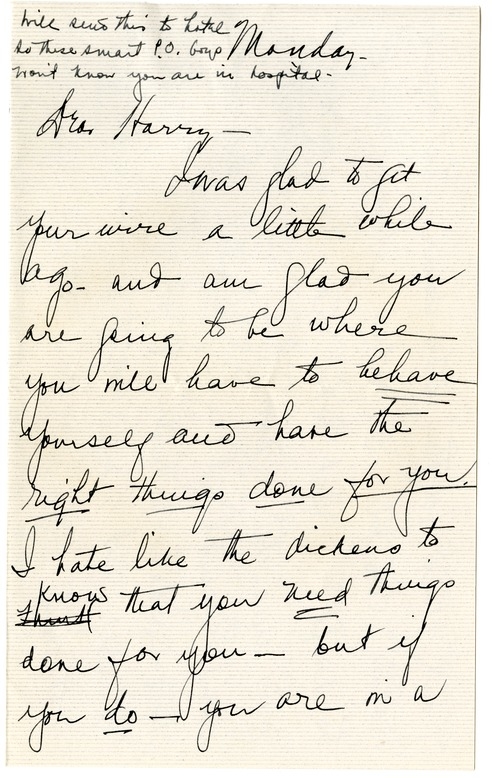 Will send this to hotel
so these smart P.O. boys
won't know you are in hospital -
Monday -
Dear Harry -
I was glad to get
your wire a little while
ago - and am glad you
are going to be where
you will have to behave
yourself and have the
right things done for you.
I hate like the dickens to
know
think that you need things
done for you - but if
you do - you are in a